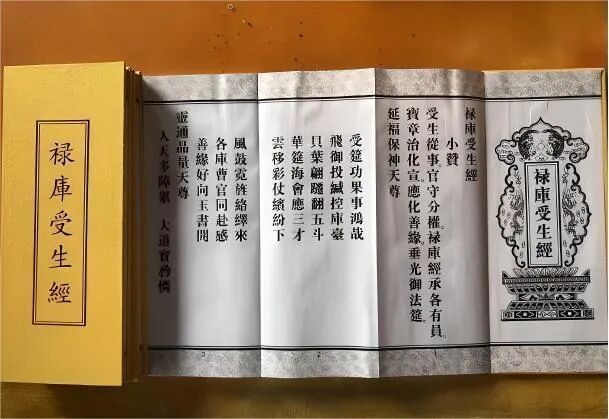 禄庫受生經
禄庫受生經
小贊
受生從事。官守分權。禄庫經承各有員。
寶章治化宣。應化善緣。垂光御法筵。
延福保神天尊
受筵功果事鴻哉
飛御投緘控庫臺
貝葉翩翻五斗
華筵海會應三才
雲移彩仗繽紛下
風鼓霓旌絡繹來
各庫曹官同赴感
善緣好向玉書開
靈通品量天尊
人天多障累 大道實矜憐
3
2
1
禄庫受生經